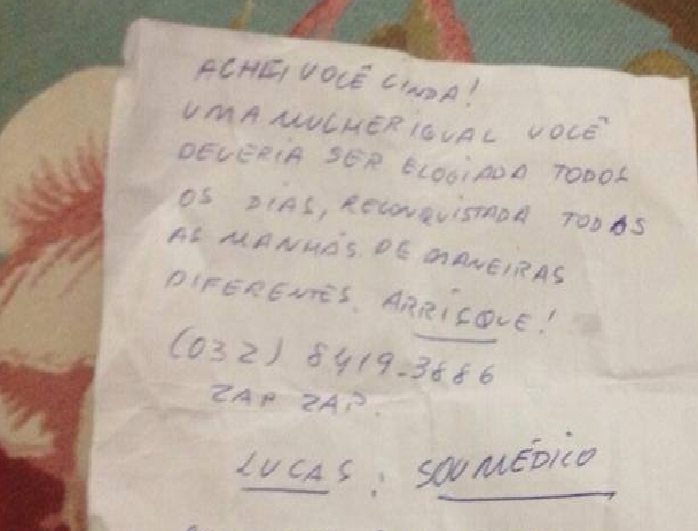 ACHEI VOCÊ LINDA!
UMA MULHER IGUAL VOCÊ
DEVERIA SER ELOGIADA TODOS
OS DIAS, RECONQUISTADA TODAS
AS MANHÃS DE MANEIRAS
DIFERENTES. ARRISQUE!
(032) 8419-3886
ZAP ZAP.
LUCAS: SOU MÉDICO